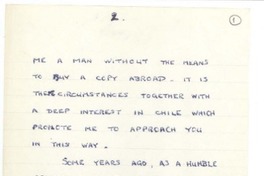 2.
1
ME A MAN WITHOUT THE MEANS
TO BUY A COPY ABROAD. IT IS
THESE CIRCUMSTANCES TOGETHER WITH
A DEEP INTEREST IN CHILE WHICH
PROMOTE ME TO APPROACH YOU
IN THIS WAY.
SOME YEARS AGO, AS A HUMBLE